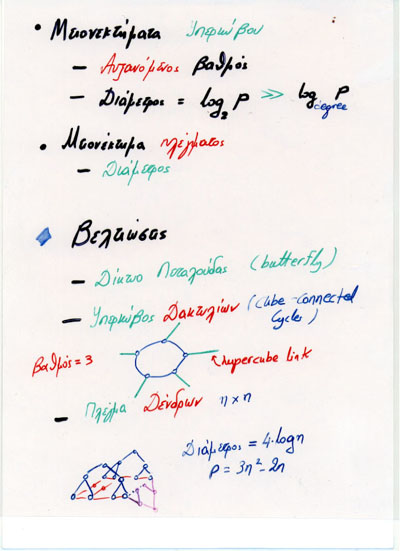 • Μειονεκτήματα Υπερκύβου
– Αυξανόμενος βαθμός
– Διάμετρος = log₂ P >> log_degree P
• Μειονέκτημα πλέγματος
– Διάμετρος
Βελτιώσεις
– Δίκτυο Πεταλούδας (butterfly)
– Υπερκύβος Δακτυλίων (cube-connected cycles)
βαθμός = 3
hypercube link
– Πλέγμα Δένδρων n x n
Διάμετρος = 4·logn
P = 3n² - 2n